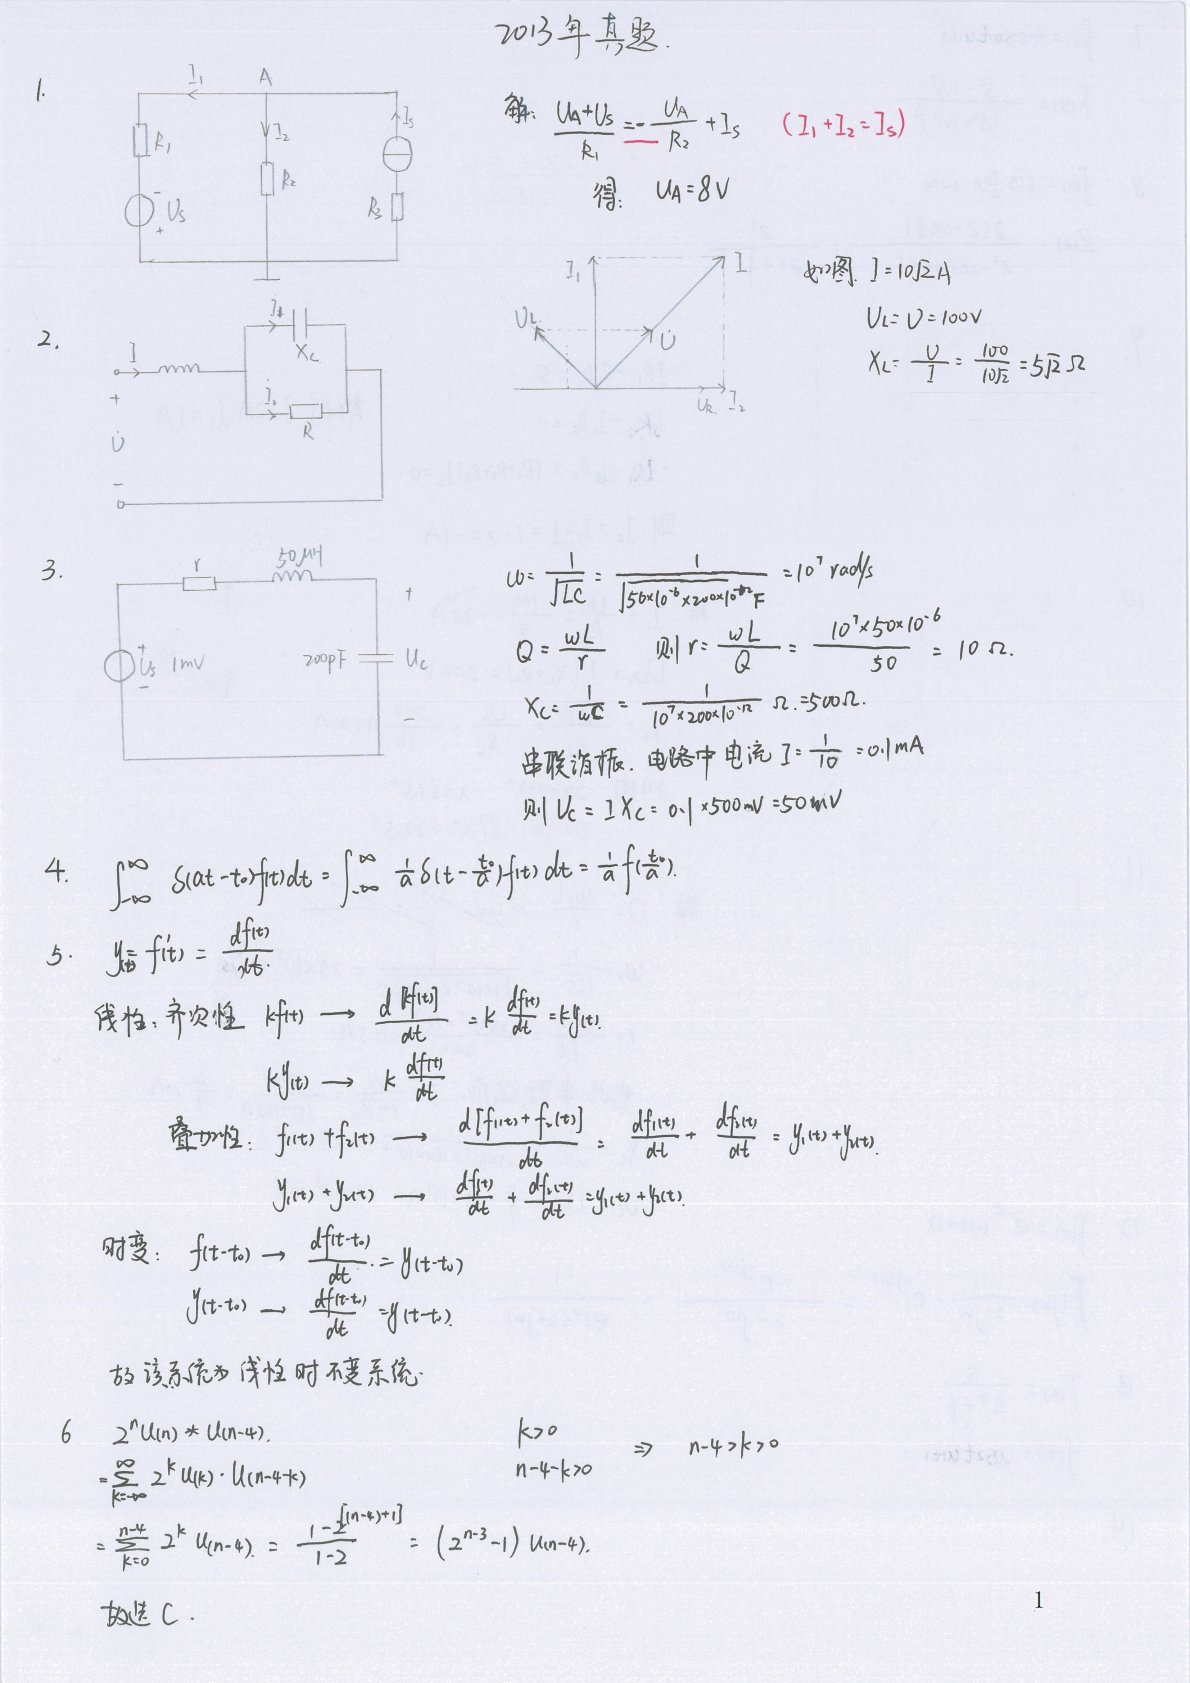 2013年真题.
1.
I₁ A I₂ Is
R₁ R₂ R₃
- Us +
解: (U_A+U_S)/R₁ = -U_A/R₂ + I_S (I₁+I₂=I_S)
得: U_A=8V
2.
I I₁ X_C I₂ R
+ U̇ -
I₁ I U_L U̇ U_R I₂
如图. I=10√2 A
U_L=U=100V
X_L= U/I = 100/(10√2) = 5√2 Ω
3.
r 50μH
+ Us 1mV - 200pF + Uc -
ω= 1/√(LC) = 1/√(50×10⁻⁶×200×10⁻¹²) F =10⁷ rad/s
Q= ωL/r 则 r= ωL/Q = (10⁷×50×10⁻⁶)/50 = 10 Ω.
X_C= 1/(ωC) = 1/(10⁷×200×10⁻¹²) Ω.=500Ω.
串联谐振. 电路中电流 I= 1/10 =0.1mA
则 U_C = I X_C = 0.1×500mV=50mV
4. ∫_{-∞}^{∞} δ(at-t₀)f(t)dt = ∫_{-∞}^{∞} 1/a δ(t - t₀/a) f(t) dt = 1/a f(t₀/a).
5. y(t)= f'(t) = df(t)/dt.
线性: 齐次性 kf(t) → d[kf(t)]/dt = k df(t)/dt =ky(t).
ky(t) → k df(t)/dt
叠加性: f₁(t)+f₂(t) → d[f₁(t)+f₂(t)]/dt = df₁(t)/dt + df₂(t)/dt = y₁(t)+y₂(t).
y₁(t)+y₂(t) → df₁(t)/dt + df₂(t)/dt =y₁(t)+y₂(t).
时变: f(t-t₀) → df(t-t₀)/dt .= y(t-t₀)
y(t-t₀) → df(t-t₀)/dt =y(t-t₀).
故该系统为线性时不变系统.
6 2ⁿU(n) * U(n-4). k>0
= ∑_{k=-∞}^{∞} 2ᵏ U(k)·U(n-4-k) n-4-k>0 ⇒ n-4>k>0
= ∑_{k=0}^{n-4} 2ᵏ U(n-4). = (1-2^{[(n-4)+1]})/(1-2) = (2ⁿ⁻³-1) U(n-4).
故选 C.
1